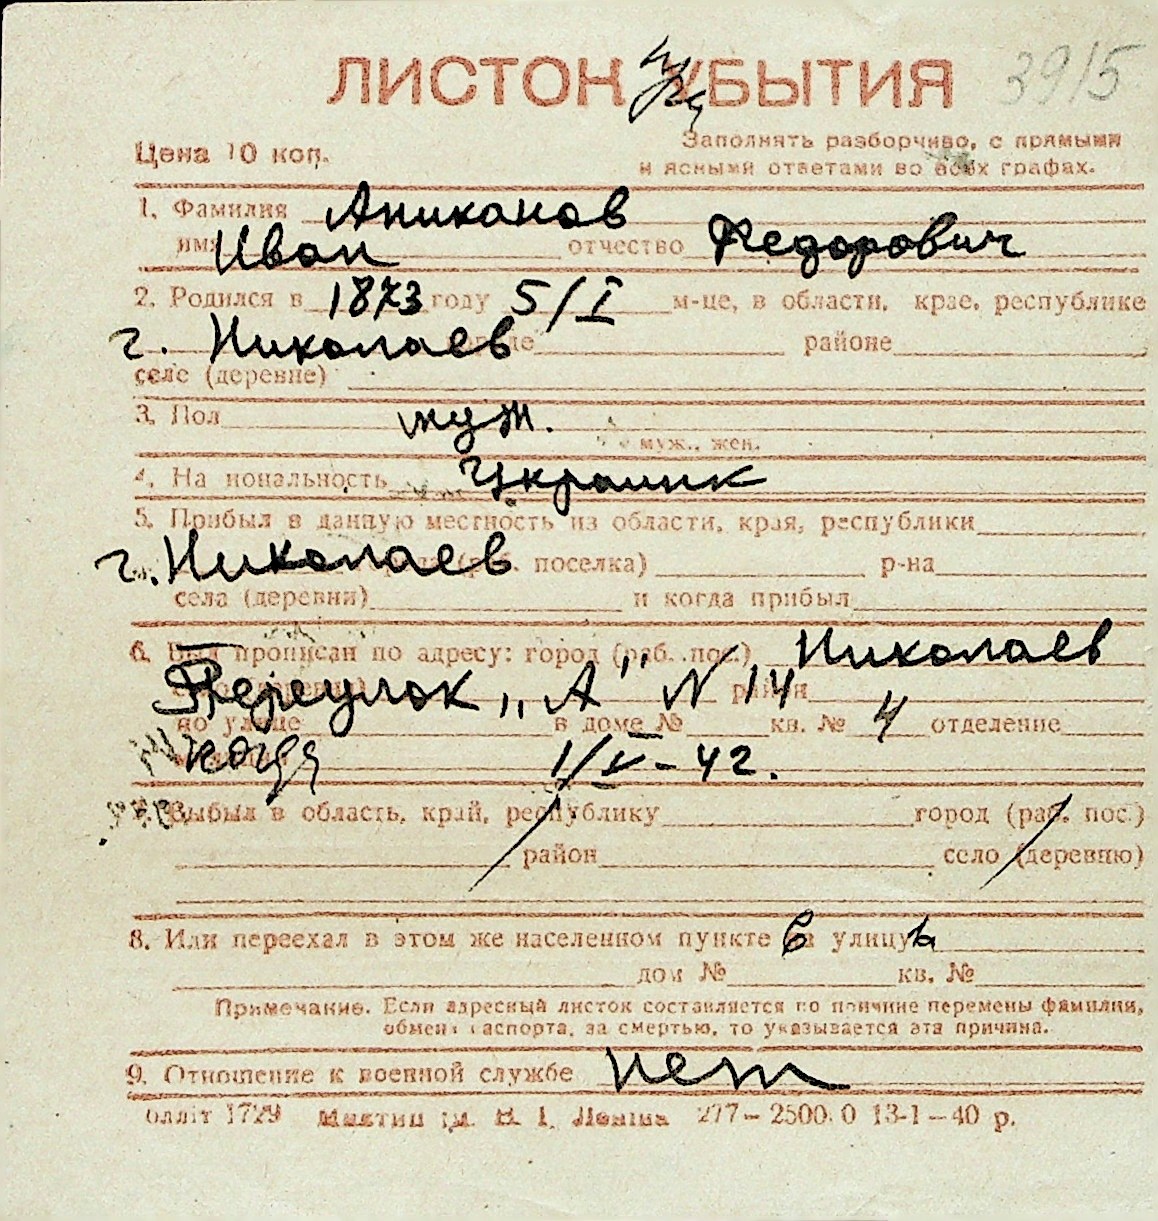 ЛИСТОК УБЫТИЯ
3915
Цена 10 коп.
Заполнять разборчиво, с прямыми
и ясными ответами во всех графах.
1. Фамилия Аниканов
имя Иван отчество Федорович
2. Родился в 1873 году 5/I м-це, в области, крае, республике
г. Николаев районе
селе (деревне)
3. Пол муж.
муж., жен.
4. Национальность Украинк
5. Прибыл в данную местность из области, края, республики
г. Николаев поселка) р-на
села (деревни) и когда прибыл
6. Был прописан по адресу: город (раб. пос.) Николаев
Переулок „А" N 14 район
по улице в доме № кв. № 4 отделение
когда 1/V-42.
7. Выбыл в область, край, республику город (раб. пос.)
район село (деревню)
8. Или переехал в этом же населенном пункте улицу
дом № кв. №
Примечание. Если адресный листок составляется по причине перемены фамилии,
обмена паспорта, за смертью, то указывается эта причина.
9. Отношение к военной службе нет
1729 277—2500.0 13-1—40 р.